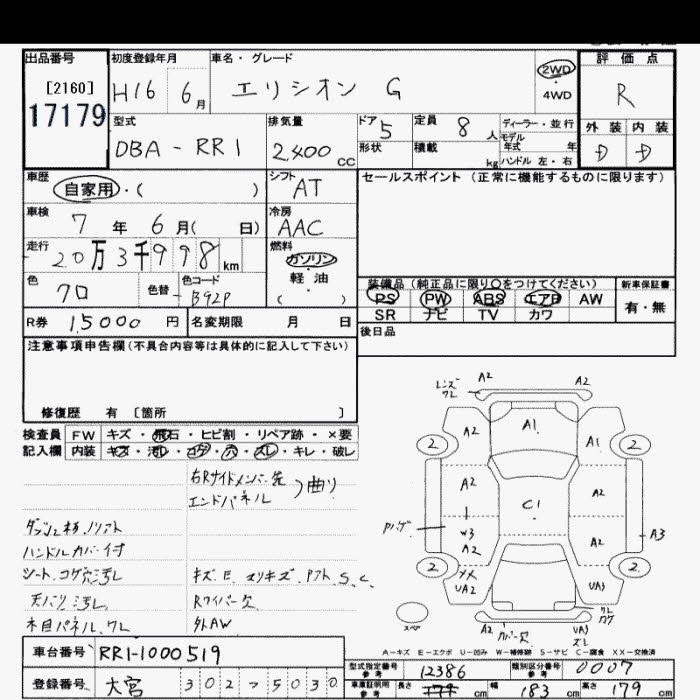 出品番号 初度登録年月 車名・グレード 評価点
[2160] H16 6月 エリシオン G 2WD・4WD R
17179
型式 排気量 ドア 5 定員 8人 ディーラー・並行
モデル年式 年
外装 内装
DBA-RR1 2400cc 形状 積載 kg ハンドル 左・右 D D
車歴 自家用・( ) シフト AT セールスポイント(正常に機能するものに限ります)
車検 7年 6月( 日) 冷房 AAC
走行 20万3千998km 燃料 ガソリン 軽・油 ( )
色 クロ 色替 色コード B92P
装備品(純正品に限り○をつけてください) 新車保証書
PS PW ABS エアB AW 有・無
SR ナビ TV カワ
R券 15000円 名変期限 月 日 後日品
注意事項申告欄(不具合内容等は具体的に記入して下さい)
修復歴 有 [箇所 ]
検査員記入欄 FW キズ・飛石・ヒビ割・リペア跡・×要
内装 キズ・汚レ・コゲ・穴・スレ・キレ・破レ
右Rサイドメンバー先
エンドパネル 曲り
ハンドルカバー付
シート、コゲ穴汚レ キズ、E、
天バリ汚レ Rワイパー欠
木目パネル、ワレ 外AW
レンズワレ A2 A2
A2 A1 A1
2 2
A2 A2
C1
Pハゲ W3 A2 A2 A3
2 2
UA2 UA3
スペア A2 カバー欠 UA3 スレ
A-キズ E-エクボ U-凹み W-補修跡 S-サビ C-腐食 XX-交換済
車台番号 RR1-1000519
型式指定番号 参考 12386 類別区分番号 参考 0007
登録番号 大宮 302 5030
車庫証明用 参考 長さ cm 幅 183cm 高さ 179cm